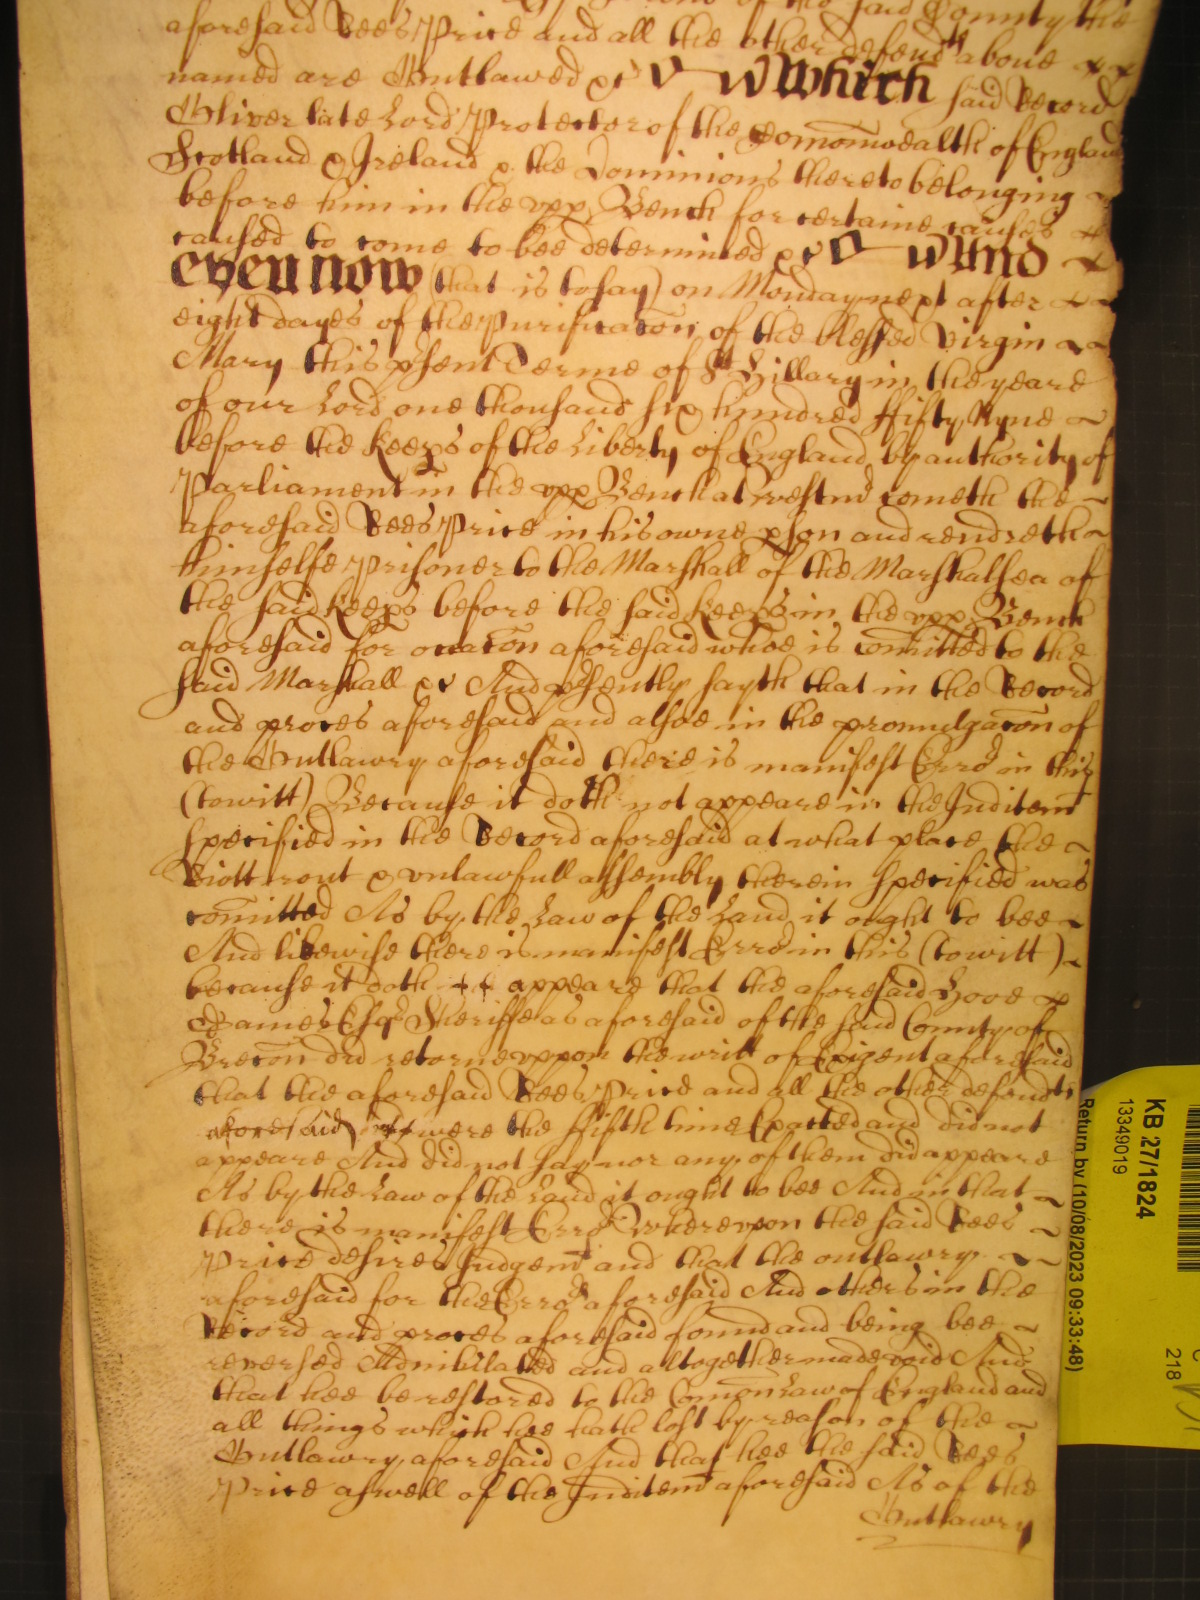 of the said County the
aforesaid Rees Price and all the other defend^ts above
named are Outlawed &c Which said Record
Oliver late Lord Protector of the Comonwealth of England
Scotland & Ireland & the Dominions thereto belonging
before him in the upp Bench for certaine causes
caused to come to bee determined &c And
even now (that is to say) on Monday next after
eight dayes of the Purificacon of the blessed Virgin
Mary this psent Terme of S^t Hillary in the yeare
of our Lord one thousand six hundred ffifty Nyne
before the Keeps of the Liberty of England by authority of
Parliament in the upp Bench at Westm^r cometh the
aforesaid Rees Price in his owne pson and rendreth
himselfe Prisoner to the Marshall of the Marshalsea of
the said Keeps before the said Keeps in the upp Bench
aforesaid for occacon aforesaid whoe is comitted to the
said Marshall &c And psently sayth that in the Record
and proces aforesaid and alsoe in the promulgacon of
the Outlawry aforesaid there is manifest Erro^r in this
(towitt) Because it doth not appeare in the Inditem^t
specified in the Record aforesaid at what place the
Riott rout & unlawfull assembly therein specified was
comitted As by the Law of the Land it ought to bee
And likewise there is manifest Erro^r in this (towitt)
because it doth appeare that the aforesaid
Games Esq^r Sheriffe as aforesaid of the said County of
Brecon did retorne uppon the writt of Exigent aforesaid
that the aforesaid Rees Price and all the other defend^ts
aforesaid were the ffifth time Exacted and did not
appeare And did not say nor any of them did appeare
As by the Law of the Land it ought to bee And in that
there is manifest Erro^r Whereupon the said Rees
Price desires Judgem^t and that the outlawry
aforesaid for the Erro^rs aforesaid And others in the
Record and proces aforesaid found and being bee
reversed Adnihilated and altogether made void And
that hee be restored to the Comon Law of England and
all things which hee hath lost by reason of the
Outlawry aforesaid And that hee the said Rees
Price aswell of the Inditem^t aforesaid As of the
Outlawry
KB 27/1824
13349019
Return by (10/08/2023 09:33:48)
218